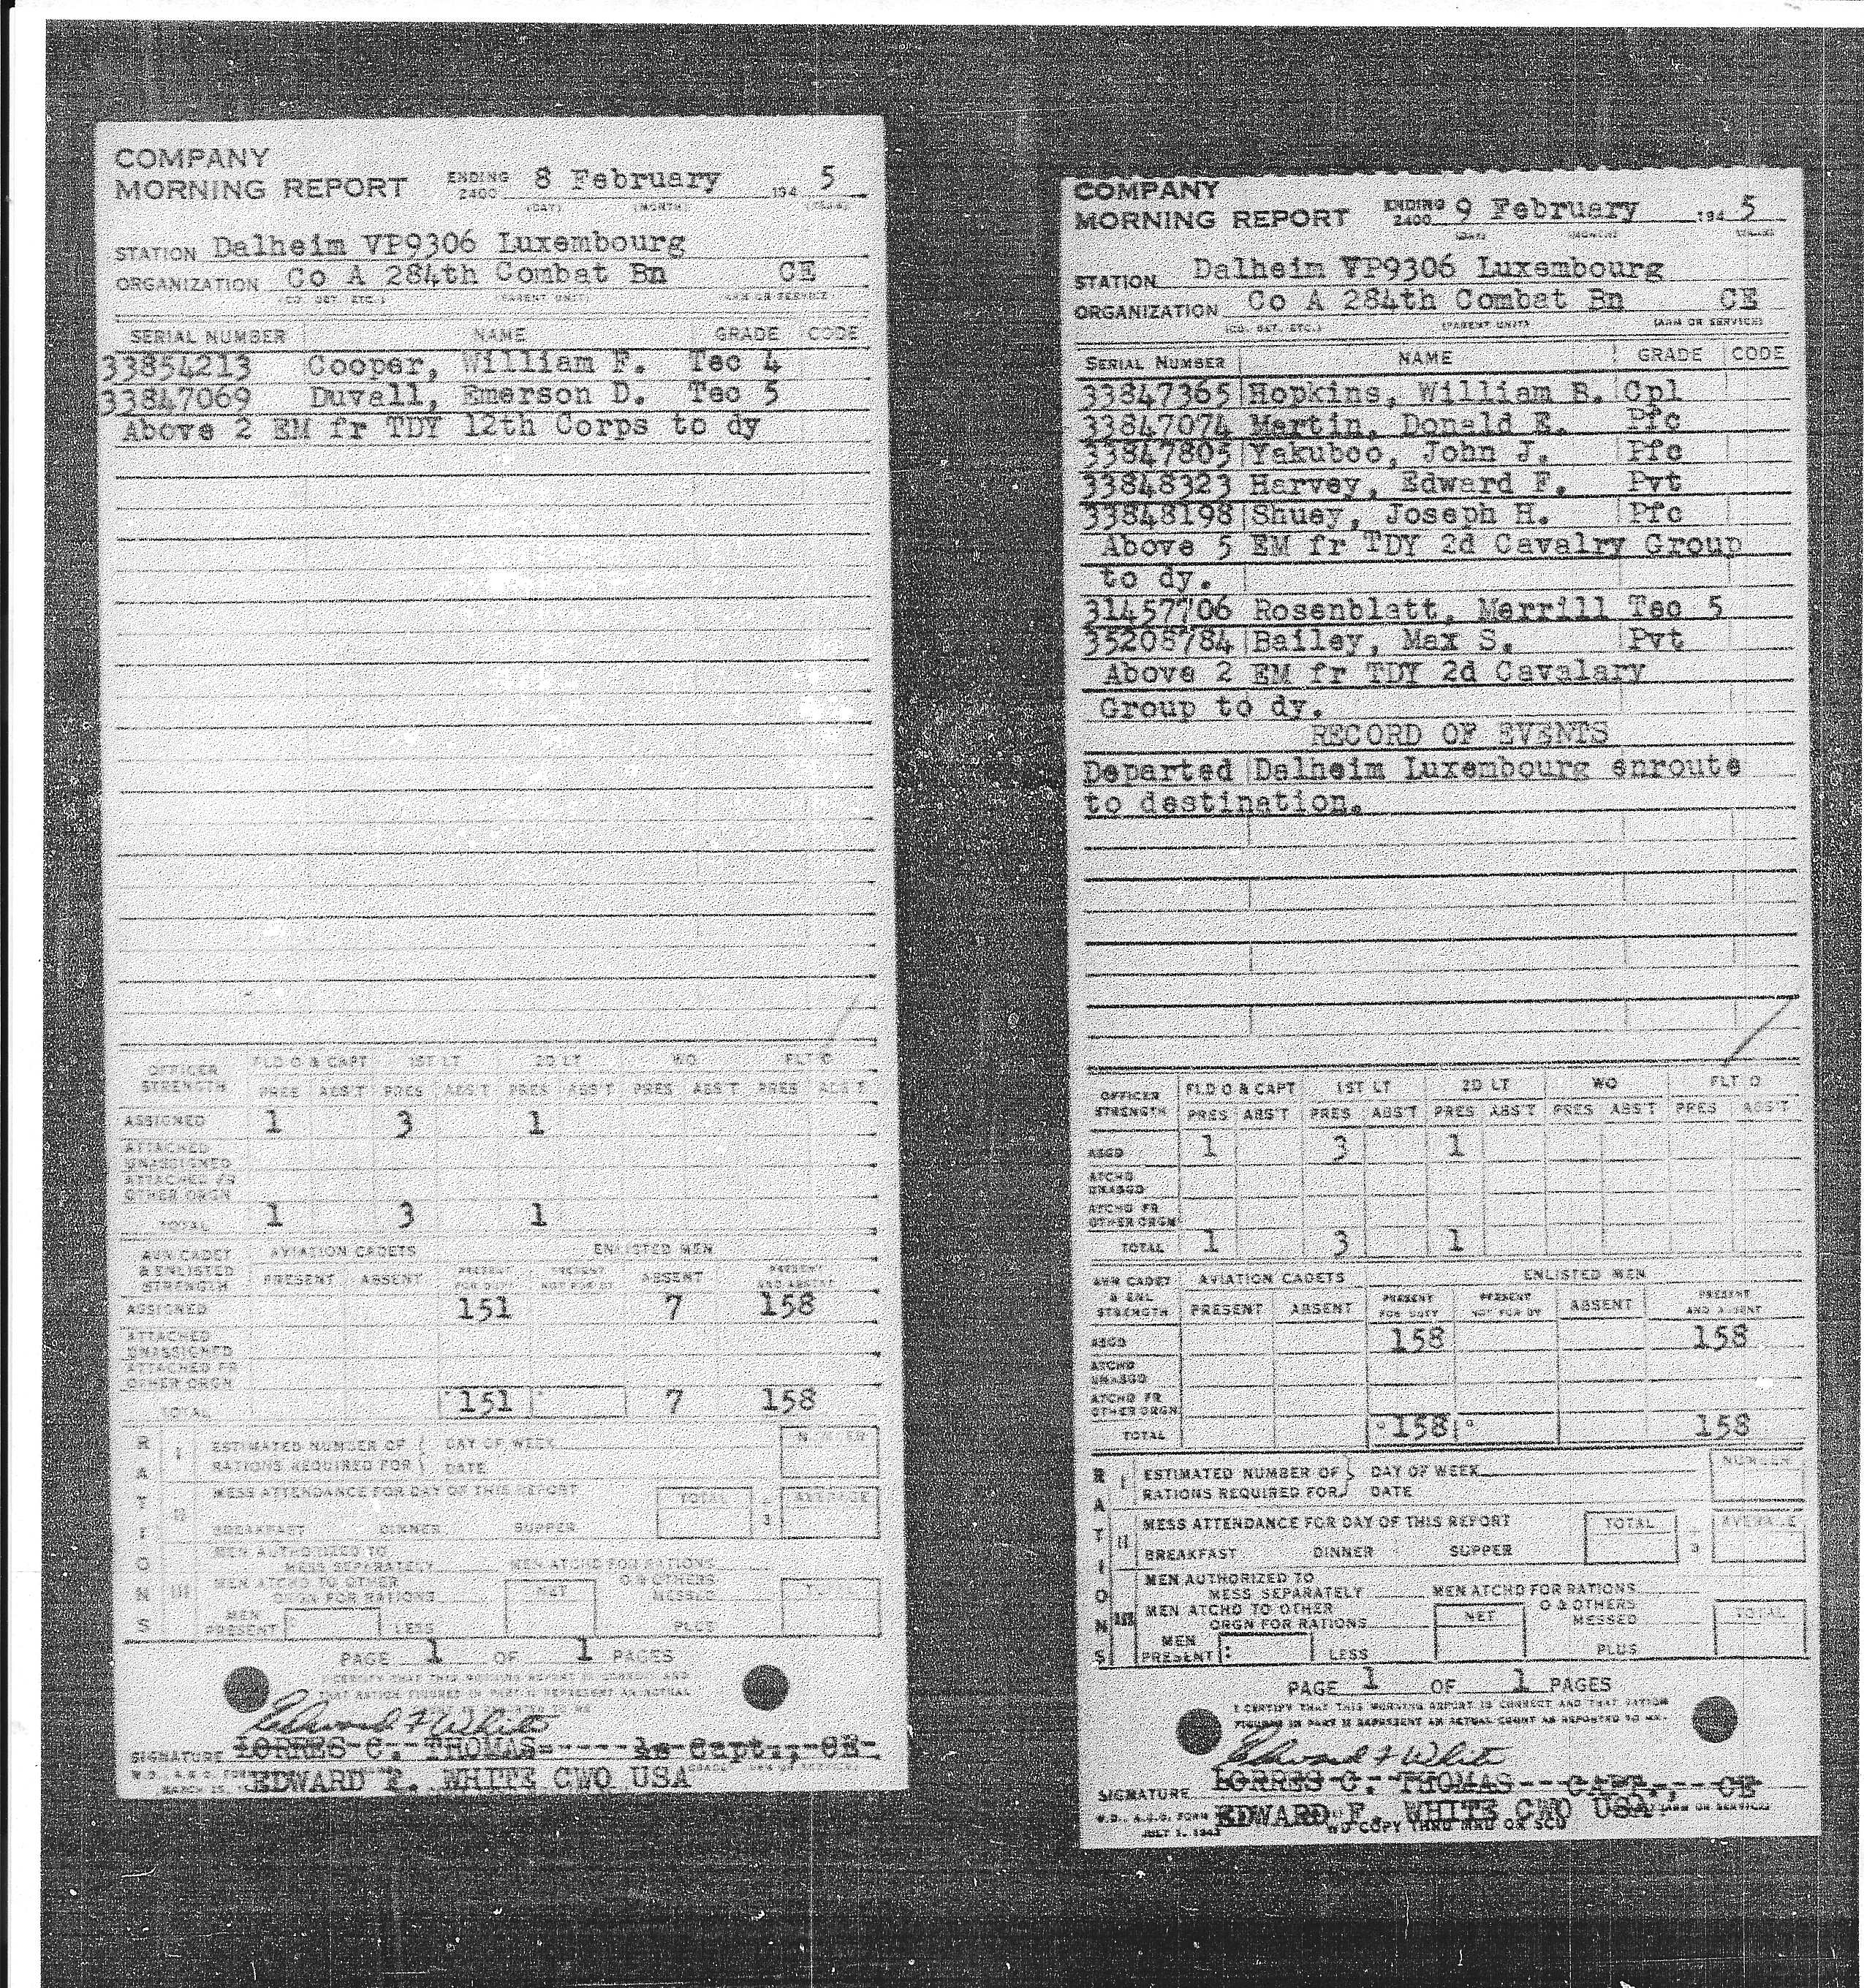 COMPANY
MORNING REPORT ENDING 2400 8 February 194 5
(DAY) (MONTH)
STATION Dalheim VP9306 Luxembourg
ORGANIZATION Co A 284th Combat Bn CE
(CO. DET. ETC.) (PARENT UNIT) (ARM OR SERVICE)
SERIAL NUMBER NAME GRADE CODE
33854213 Cooper, William F. Tec 4
33847069 Duvall, Emerson D. Tec 5
Above 2 EM fr TDY 12th Corps to dy
OFFICER STRENGTH FLD O & CAPT 1ST LT 2D LT WO FLT O
PRES ABS'T PRES ABS'T PRES ABS'T PRES ABS'T PRES ABS'T
ASSIGNED 1 3 1
ATTACHED UNASSIGNED
ATTACHED FR OTHER ORGN
TOTAL 1 3 1
AVN CADET & ENLISTED STRENGTH AVIATION CADETS ENLISTED MEN
PRESENT ABSENT PRESENT FOR DUTY PRESENT NOT FOR DY ABSENT PRESENT AND ABSENT
ASSIGNED 151 7 158
ATTACHED UNASSIGNED
ATTACHED FR OTHER ORGN
TOTAL 151 7 158
RATIONS
I ESTIMATED NUMBER OF RATIONS REQUIRED FOR DAY OF WEEK DATE NUMBER
II MESS ATTENDANCE FOR DAY OF THIS REPORT TOTAL ÷ 3 AVERAGE
BREAKFAST DINNER SUPPER
III MEN AUTHORIZED TO MESS SEPARATELY MEN ATCHD FOR RATIONS
MEN ATCHD TO OTHER ORGN FOR RATIONS NET O & OTHERS MESSED TOTAL
MEN PRESENT LESS PLUS
PAGE 1 OF 1 PAGES
I CERTIFY THAT THIS MORNING REPORT IS CORRECT AND
THAT RATION FIGURES IN PART II REPRESENT AN ACTUAL
Edward F White
SIGNATURE LORRES C. THOMAS 1s Capt., CE
EDWARD F. WHITE CWO USA
COMPANY
MORNING REPORT ENDING 2400 9 February 194 5
STATION Dalheim VP9306 Luxembourg
ORGANIZATION Co A 284th Combat Bn CE
(CO. DET. ETC.) (PARENT UNIT) (ARM OR SERVICE)
SERIAL NUMBER NAME GRADE CODE
33847365 Hopkins, William B. Cpl
33847074 Martin, Donald E. Pfc
33847805 Yakuboo, John J. Pfc
33848323 Harvey, Edward F. Pvt
33848198 Shuey, Joseph H. Pfc
Above 5 EM fr TDY 2d Cavalry Group
to dy.
31457706 Rosenblatt, Merrill Tec 5
35208784 Bailey, Max S. Pvt
Above 2 EM fr TDY 2d Cavalary
Group to dy.
RECORD OF EVENTS
Departed Dalheim Luxembourg enroute
to destination.
OFFICER STRENGTH FLD O & CAPT 1ST LT 2D LT WO FLT O
PRES ABS'T PRES ABS'T PRES ABS'T PRES ABS'T PRES ABS'T
ASGD 1 3 1
ATCHD UNASGD
ATCHD FR OTHER ORGN
TOTAL 1 3 1
AVN CADET & ENL STRENGTH AVIATION CADETS ENLISTED MEN
PRESENT ABSENT PRESENT FOR DUTY PRESENT NOT FOR DY ABSENT PRESENT AND ABSENT
ASGD 158 158
ATCHD UNASGD
ATCHD FR OTHER ORGN
TOTAL 158 158
RATIONS
I ESTIMATED NUMBER OF RATIONS REQUIRED FOR DAY OF WEEK DATE NUMBER
II MESS ATTENDANCE FOR DAY OF THIS REPORT TOTAL ÷ 3 AVERAGE
BREAKFAST DINNER SUPPER
III MEN AUTHORIZED TO MESS SEPARATELY MEN ATCHD FOR RATIONS
MEN ATCHD TO OTHER ORGN FOR RATIONS NET O & OTHERS MESSED TOTAL
MEN PRESENT LESS PLUS
PAGE 1 OF 1 PAGES
I CERTIFY THAT THIS MORNING REPORT IS CORRECT AND THAT RATION
FIGURES IN PART II REPRESENT AN ACTUAL COUNT AS REPORTED TO ME.
Edward F White
SIGNATURE LORRES C. THOMAS CAPT., CE
EDWARD F. WHITE CWO USA
W.D., A.G.O. FORM
JULY 1, 1943 NO COPY THRU MRU OR SCU